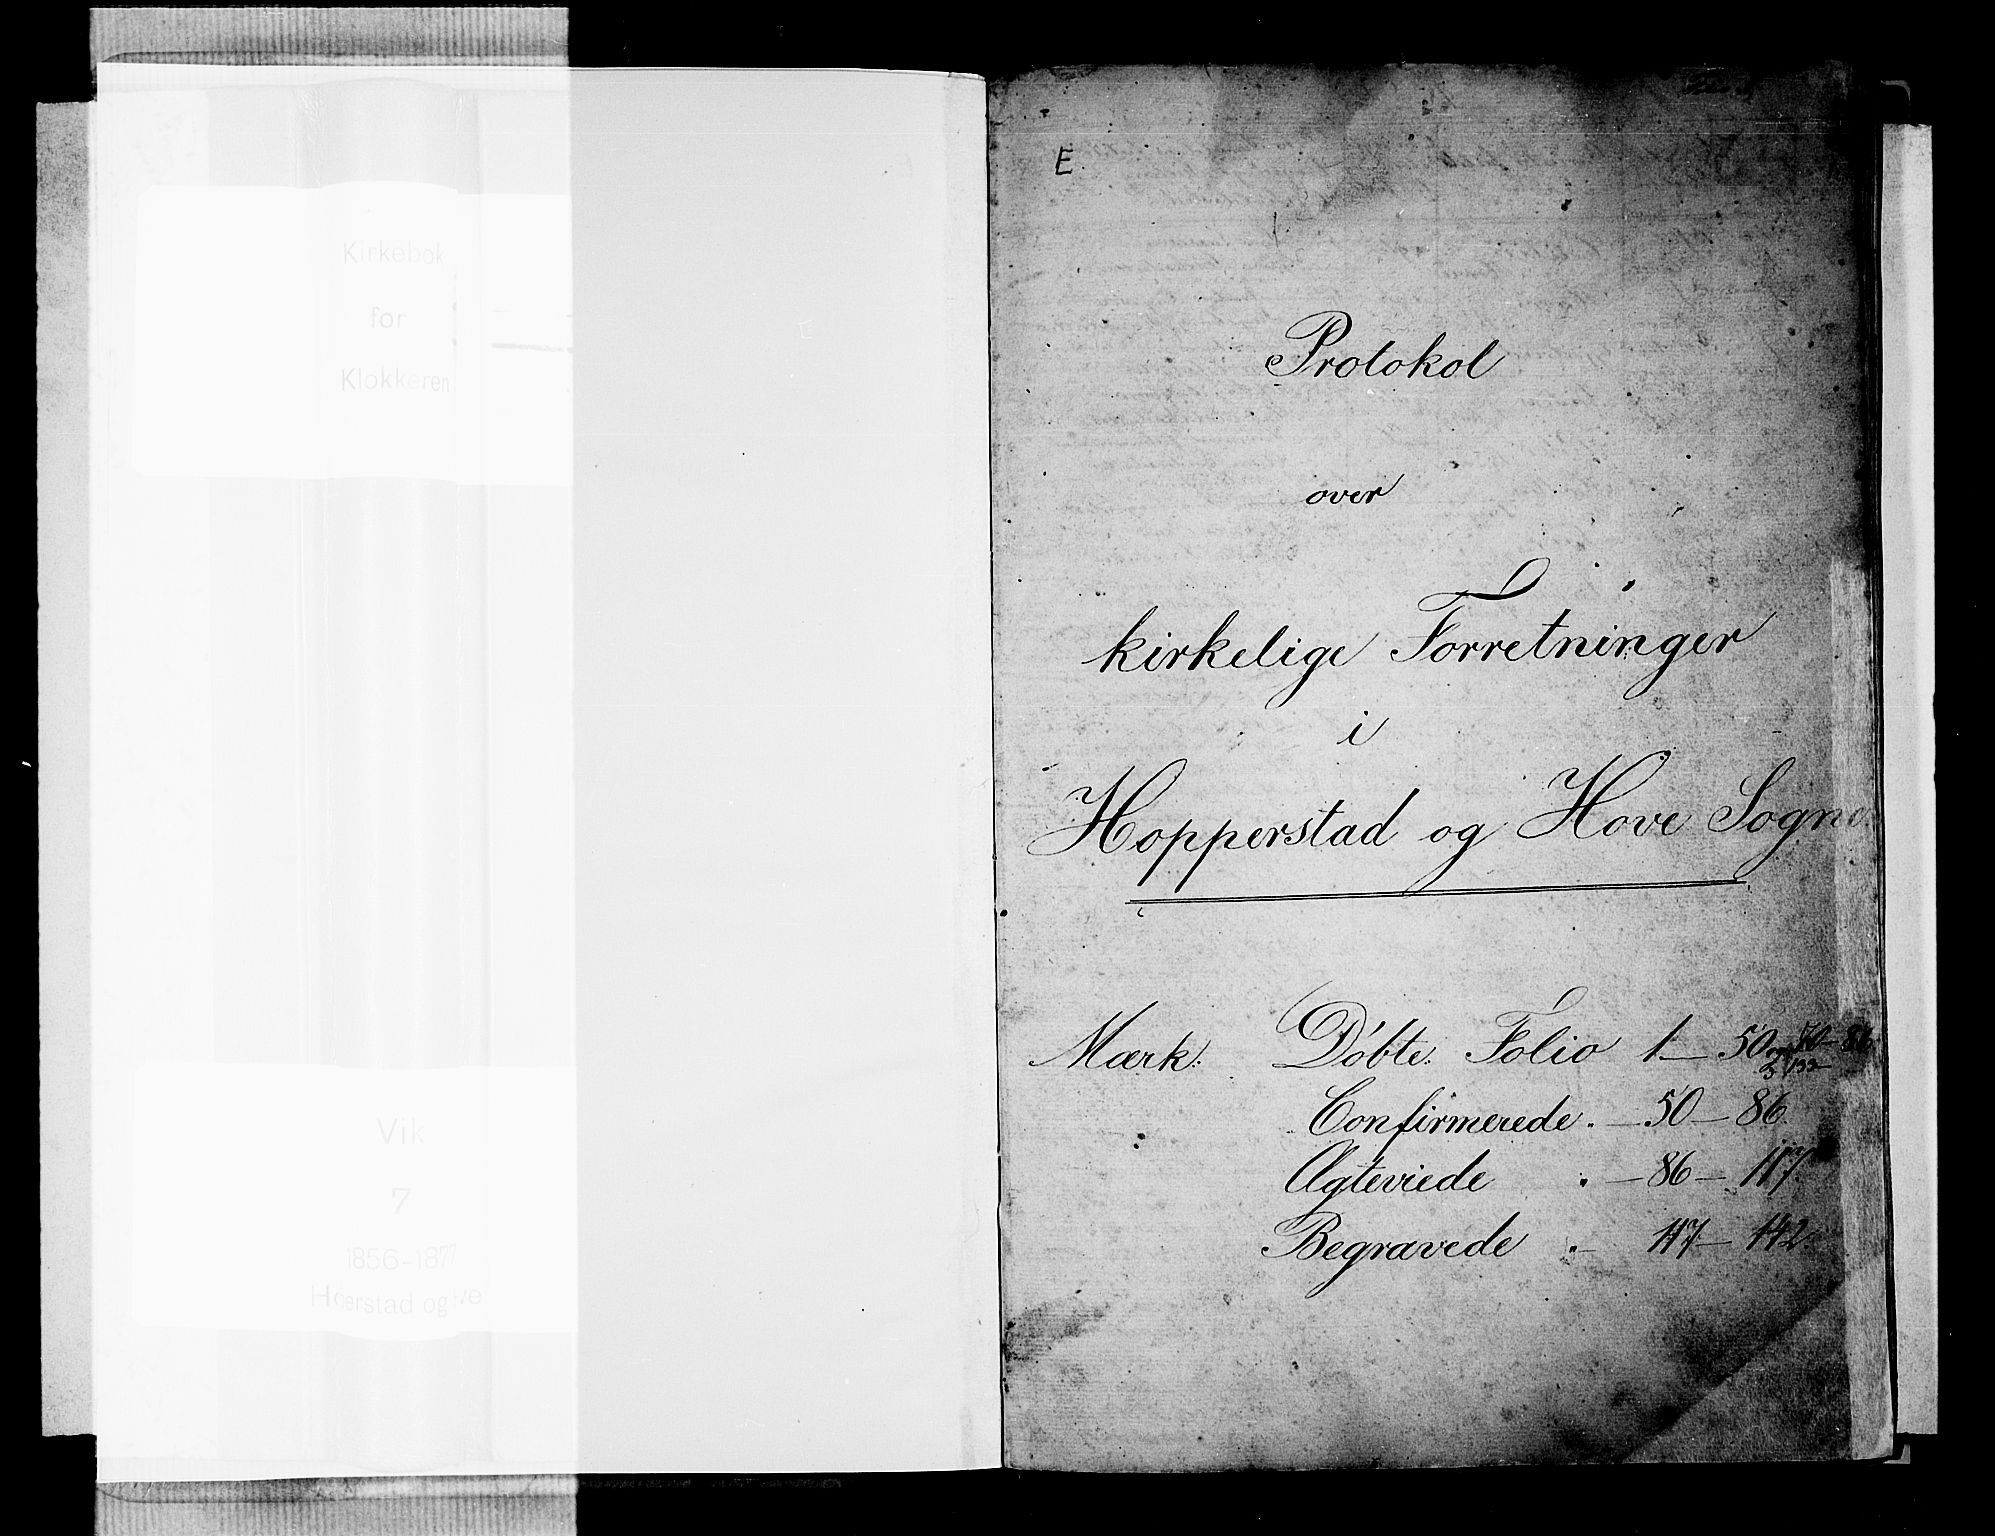 Kirkebok
for
Klokkeren
Vik
7
1856-1877
E
Protokol
over
kirkelige Forretninger
i
Hopperstad og Hove Sogne
Mærk: Døbte. Folio 1 — 50 og 70 — 86
132
Confirmerede. — 50 — 86.
Ægteviede . — 86 — 117.
Begravede . — 117 — 142.